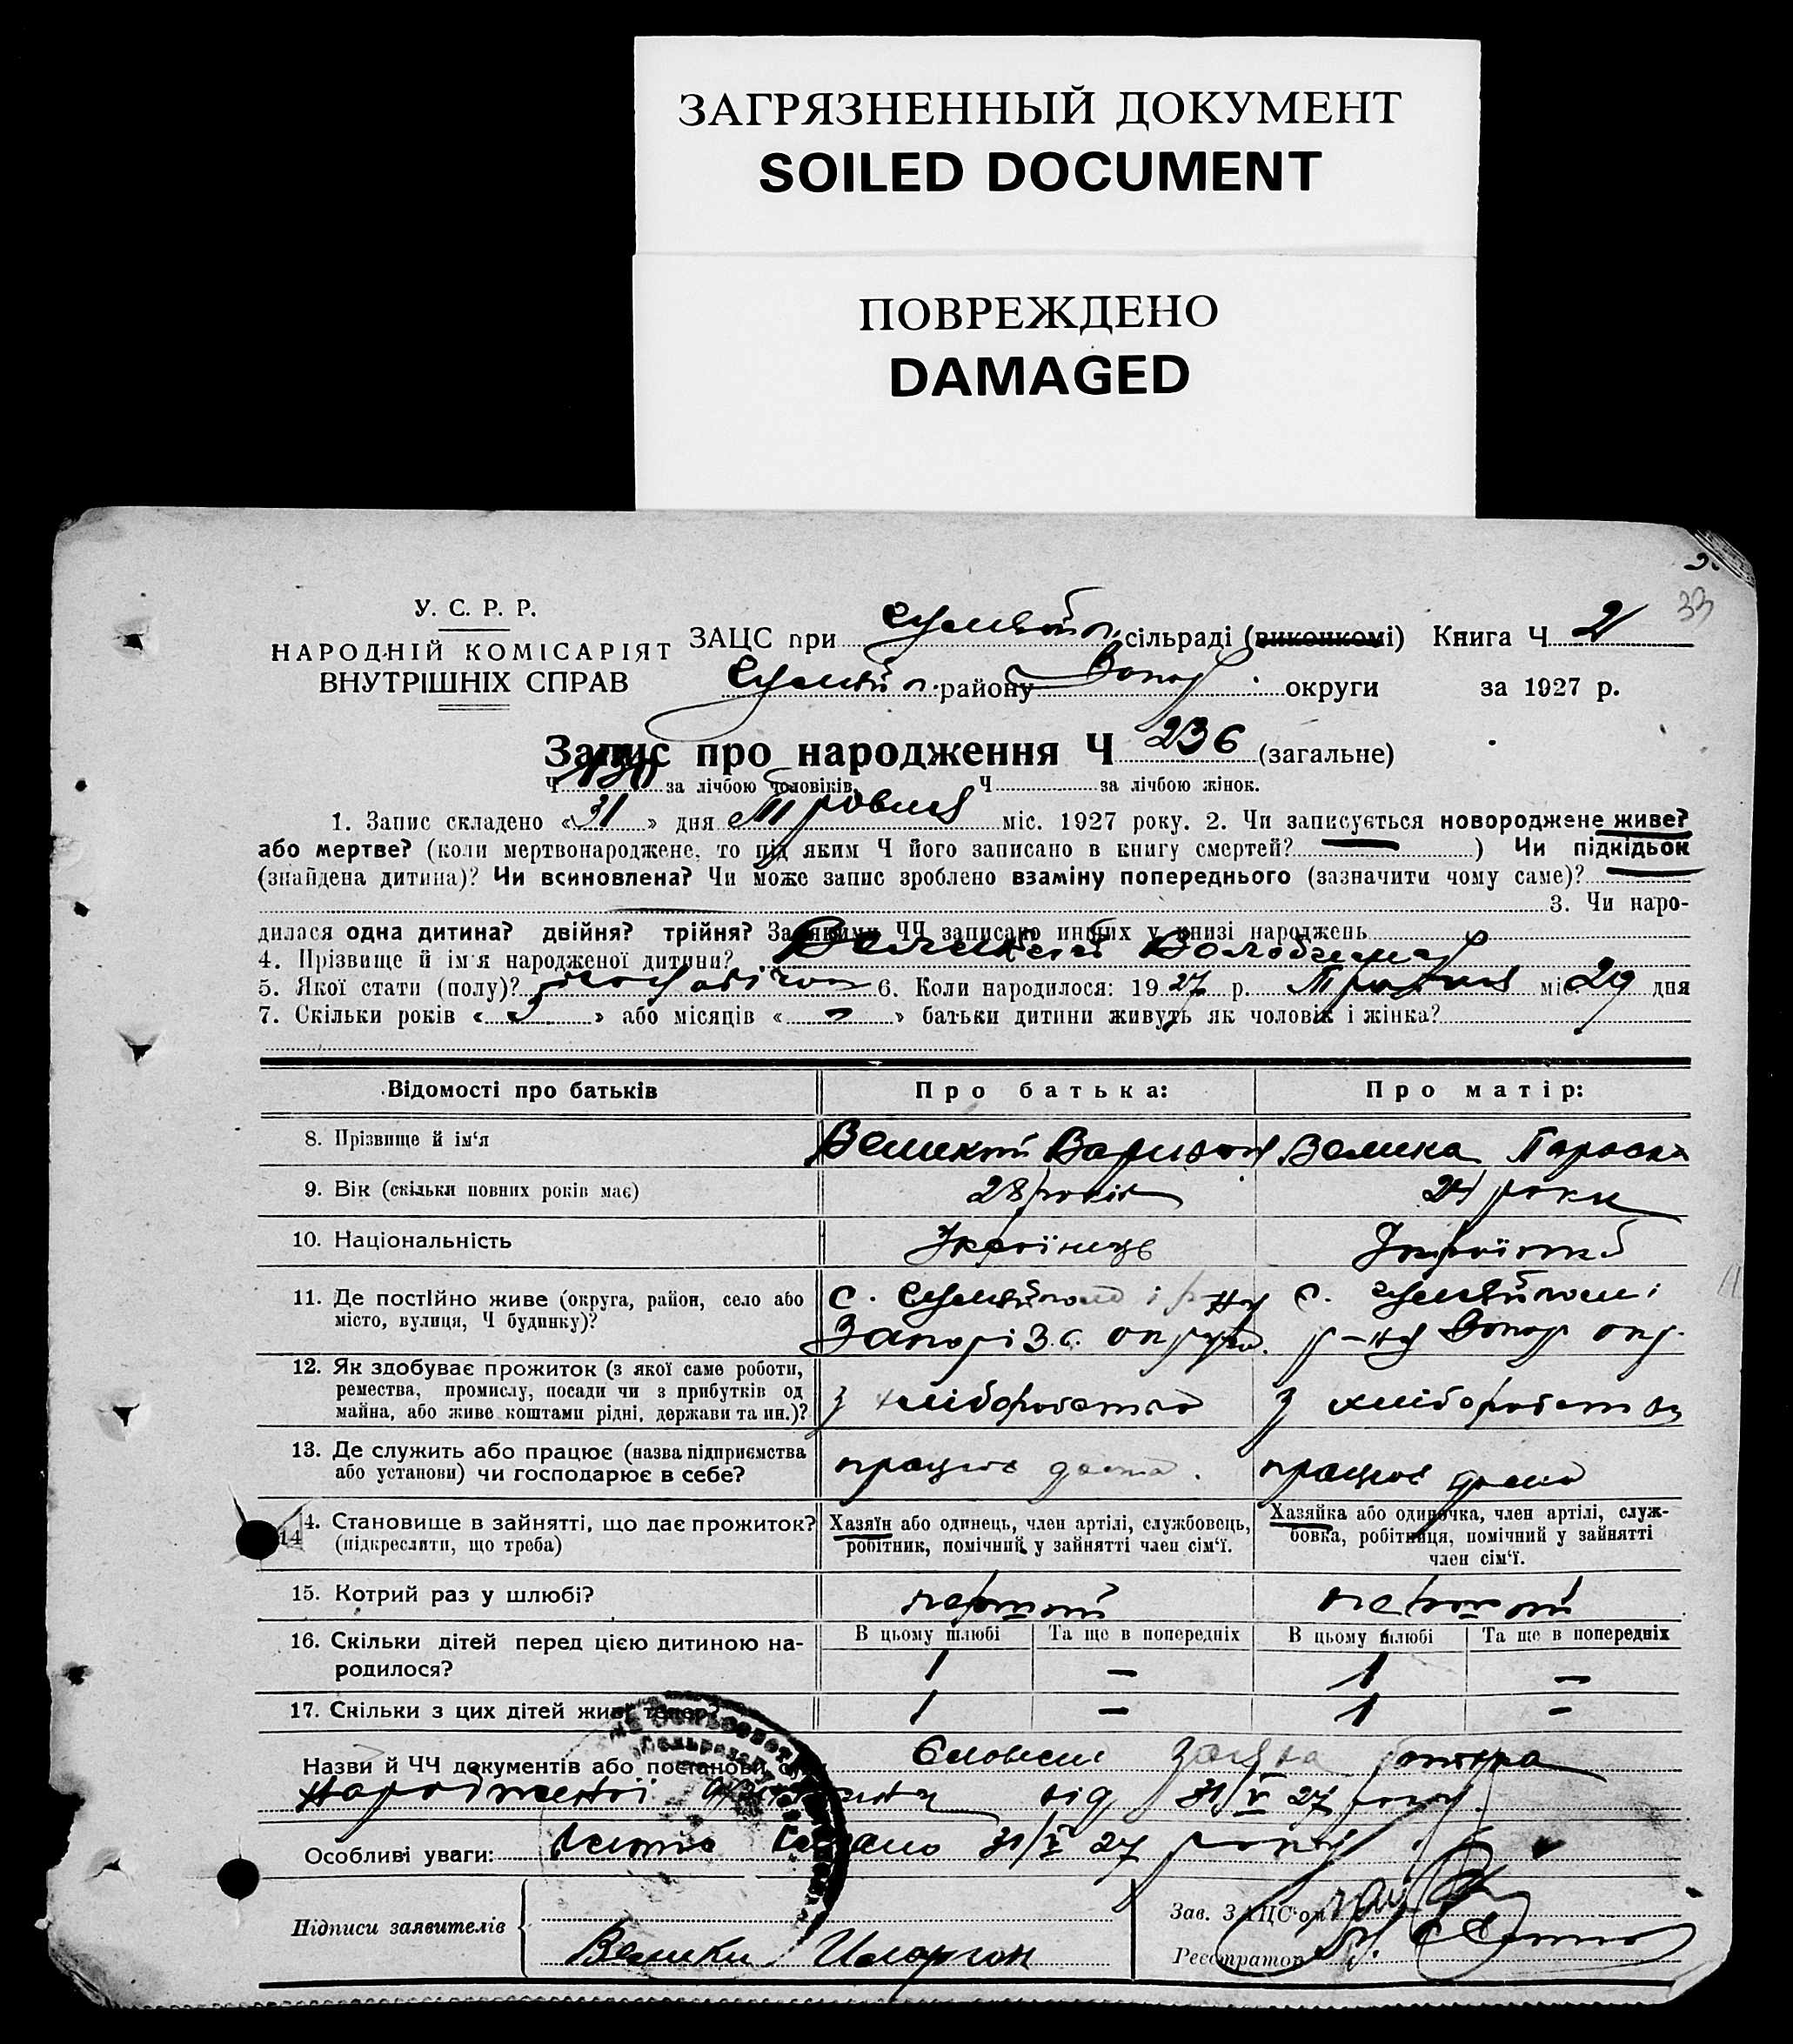 ЗАГРЯЗНЕННЫЙ ДОКУМЕНТ
SOILED DOCUMENT
ПОВРЕЖДЕНО
DAMAGED
33
У. С. Р. Р.
НАРОДНІЙ КОМІСАРІЯТ
ВНУТРІШНІХ СПРАВ
ЗАЦС при сільраді (виконкомі) Книга Ч 2
району Запор округи за 1927 р.
Запис про народження Ч 236 (загальне)
Ч 130 за лічбою чоловіків, Ч за лічбою жінок.
1. Запис складено «31» дня Травня міс. 1927 року. 2. Чи записується новороджене живе?
або мертве? (коли мертвонароджене, то під яким Ч його записано в книгу смертей? —) Чи підкідьок
(знайдена дитина)? Чи всиновлена? Чи може запис зроблено взаміну попереднього (зазначити чому саме)? —
— 3. Чи наро-
дилася одна дитина? двійня? трійня? За якими ЧЧ записано инших у книзі народжень
4. Прізвище й ім'я народженої дитини? Великий Володимир
5. Якої стати (полу)? 6. Коли народилося: 1927 р. Травня міс. 29 дня
7. Скільки років «3» або місяців «–» батьки дитини живуть як чоловік і жінка?
Відомості про батьків Про батька: Про матір:
8. Прізвище й ім'я Великий Велика Параска
9. Вік (скільки повних років має) 28 років 24 роки
10. Національність Українець Українка
11. Де постійно живе (округа, район, село або
місто, вулиця, Ч будинку)?
с. р-ну
Запоріз. округа.
с.
р-ну Запор окр.
12. Як здобуває прожиток (з якої саме роботи,
ремества, промислу, посади чи з прибутків од
майна, або живе коштами рідні, держави та ин.)?
з хліборобства з хліборобства
13. Де служить або працює (назва підприємства
або установи) чи господарює в себе?
працює дома. працює дома
14. Становище в зайнятті, що дає прожиток?
(підкреслити, що треба)
Хазяїн або одинець, член артілі, службовець,
робітник, помічний у зайнятті член сім'ї.
Хазяйка або одиночка, член артілі, служ-
бовка, робітниця, помічний у зайнятті
член сім'ї.
15. Котрий раз у шлюбі? первий первий
16. Скільки дітей перед цією дитиною на-
родилося?
В цьому шлюбі Та ще в попередніх В цьому шлюбі Та ще в попередніх
1 – 1 –
17. Скільки з цих дітей живі тепер? 1 – 1 –
Назви й ЧЧ документів або постанови Словесна заява батька
народженої дитини від 31/V 27 року.
Особливі уваги: 31/V 27 року
Підписи заявителів
Зав. ЗАЦС'ом
Велики Иларион
Реєстратор